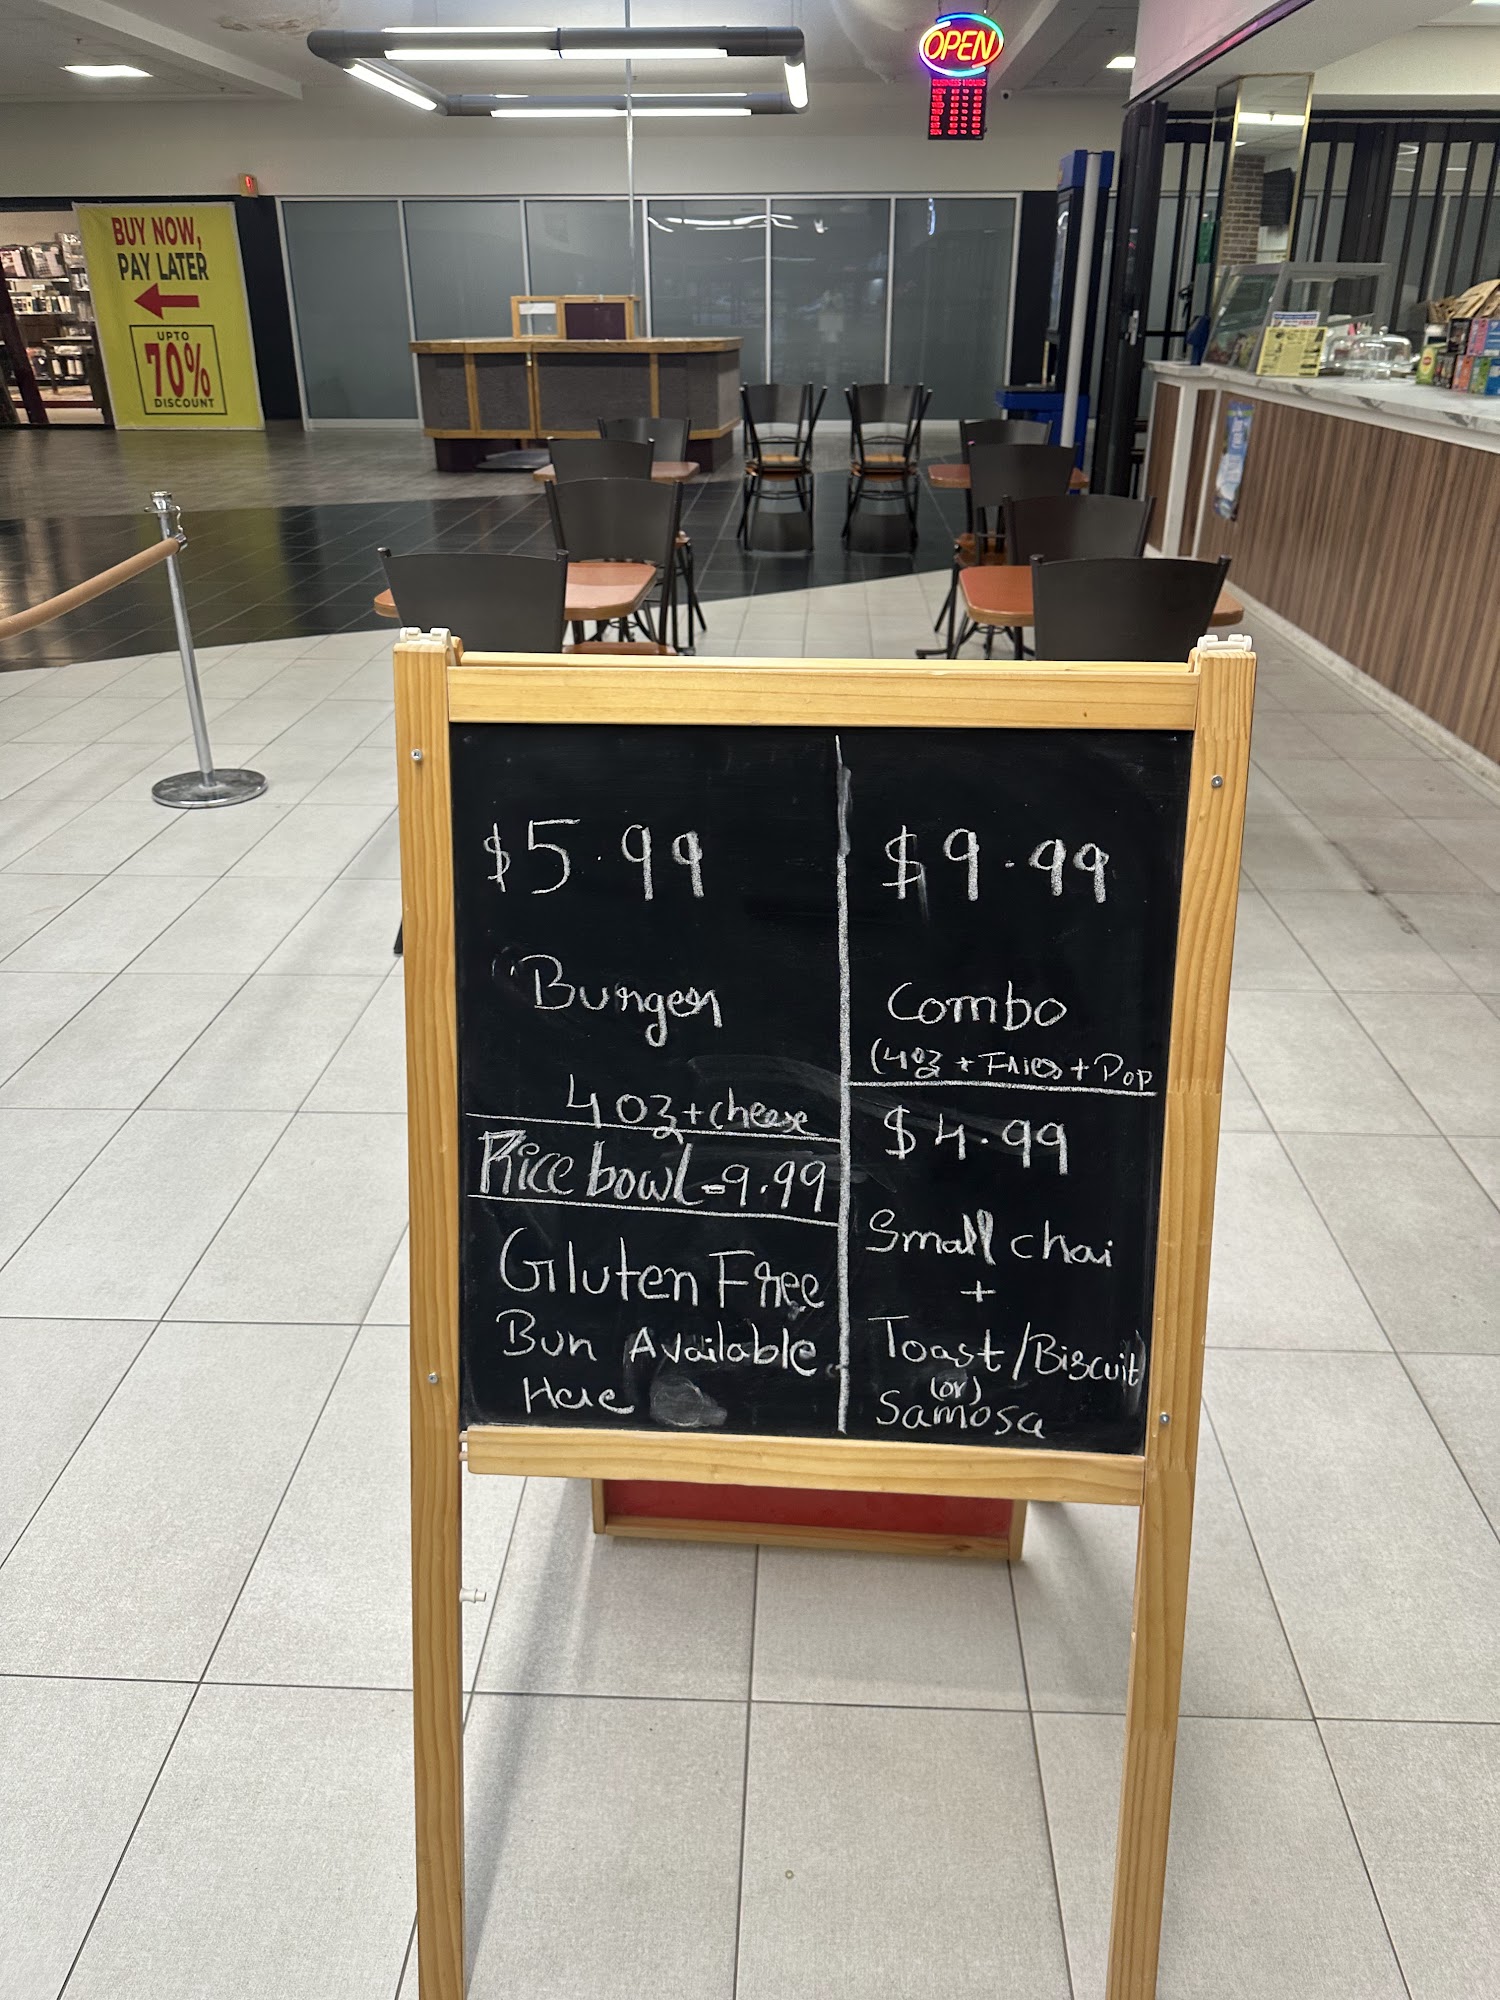 OPEN
BUSINESS HOURS
BUY NOW,
PAY LATER
UPTO
70%
DISCOUNT
$5.99
Burger
4oz+cheese
Rice bowl-9.99
Gluten Free
Bun Available
Here
$9.99
Combo
(4oz + Fries + Pop
$4.99
Small chai
+
Toast/Biscuit
(or)
Samosa